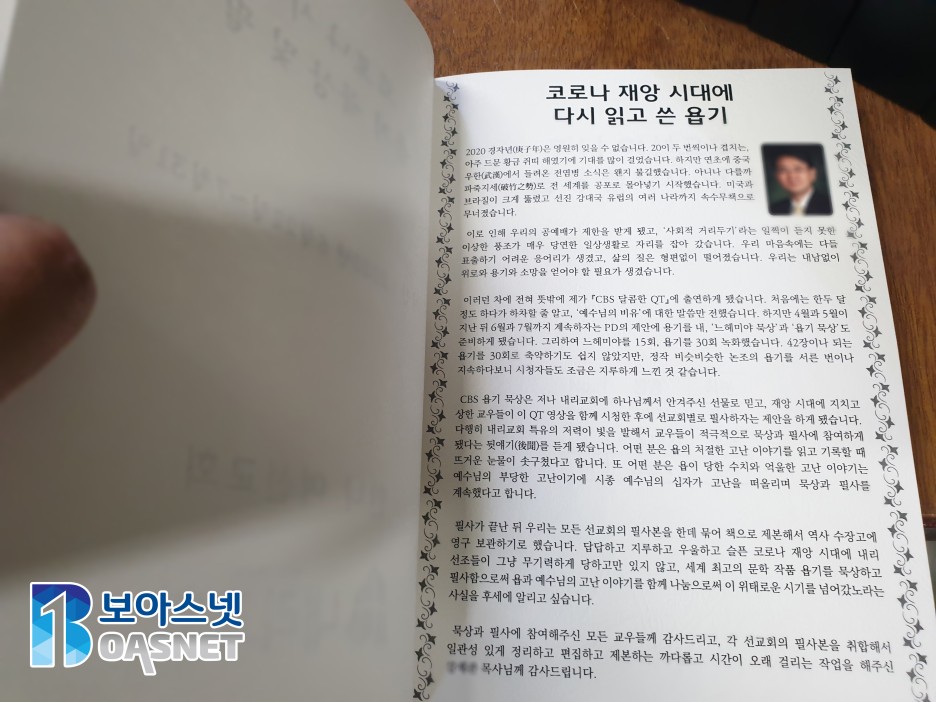 코로나 재앙 시대에
다시 읽고 쓴 욥기
2020 경자년(庚子年)은 영원히 잊을 수 없습니다. 20이 두 번씩이나 겹치는,
아주 드문 황금 쥐띠 해였기에 기대를 많이 걸었습니다. 하지만 연초에 중국
우한(武漢)에서 들려온 전염병 소식은 왠지 불길했습니다. 아니나 다를까
파죽지세(破竹之勢)로 전 세계를 공포로 몰아넣기 시작했습니다. 미국과
브라질이 크게 뚫렸고 선진 강대국 유럽의 여러 나라까지 속수무책으로
무너졌습니다.
이로 인해 우리의 공예배가 제한을 받게 됐고, '사회적 거리두기'라는 일찍이 듣지 못한
이상한 풍조가 매우 당연한 일상생활로 자리를 잡아 갔습니다. 우리 마음속에는 다들
표출하기 어려운 응어리가 생겼고, 삶의 질은 형편없이 떨어졌습니다. 우리는 내남없이
위로와 용기와 소망을 얻어야 할 필요가 생겼습니다.
이러던 차에 전혀 뜻밖에 제가 『CBS 달콤한 QT』에 출연하게 됐습니다. 처음에는 한두 달
정도 하다가 하차할 줄 알고, '예수님의 비유'에 대한 말씀만 전했습니다. 하지만 4월과 5월이
지난 뒤 6월과 7월까지 계속하자는 PD의 제안에 용기를 내, '느헤미야 묵상'과 '욥기 묵상'도
준비하게 됐습니다. 그리하여 느헤미야를 15회, 욥기를 30회 녹화했습니다. 42장이나 되는
욥기를 30회로 축약하기도 쉽지 않았지만, 정작 비슷비슷한 논조의 욥기를 서른 번이나
지속하다보니 시청자들도 조금은 지루하게 느낀 것 같습니다.
CBS 욥기 묵상은 저나 내리교회에 하나님께서 안겨주신 선물로 믿고, 재앙 시대에 지치고
상한 교우들이 이 QT 영상을 함께 시청한 후에 선교회별로 필사하자는 제안을 하게 됐습니다.
다행히 내리교회 특유의 저력이 빛을 발해서 교우들이 적극적으로 묵상과 필사에 참여하게
됐다는 뒷얘기(後聞)를 듣게 됐습니다. 어떤 분은 욥의 처절한 고난 이야기를 읽고 기록할 때
뜨거운 눈물이 솟구쳤다고 합니다. 또 어떤 분은 욥이 당한 수치와 억울한 고난 이야기는
예수님의 부당한 고난이기에 시종 예수님의 십자가 고난을 떠올리며 묵상과 필사를
계속했다고 합니다.
필사가 끝난 뒤 우리는 모든 선교회의 필사본을 한데 묶어 책으로 제본해서 역사 수장고에
영구 보관하기로 했습니다. 답답하고 지루하고 우울하고 슬픈 코로나 재앙 시대에 내리
선조들이 그냥 무기력하게 당하고만 있지 않고, 세계 최고의 문학 작품 욥기를 묵상하고
필사함으로써 욥과 예수님의 고난 이야기를 함께 나눔으로써 이 위태로운 시기를 넘어갔노라는
사실을 후세에 알리고 싶습니다.
묵상과 필사에 참여해주신 모든 교우들께 감사드리고, 각 선교회의 필사본을 취합해서
일관성 있게 정리하고 편집하고 제본하는 까다롭고 시간이 오래 걸리는 작업을 해주신
목사님께 감사드립니다.
보아스넷
BOASNET